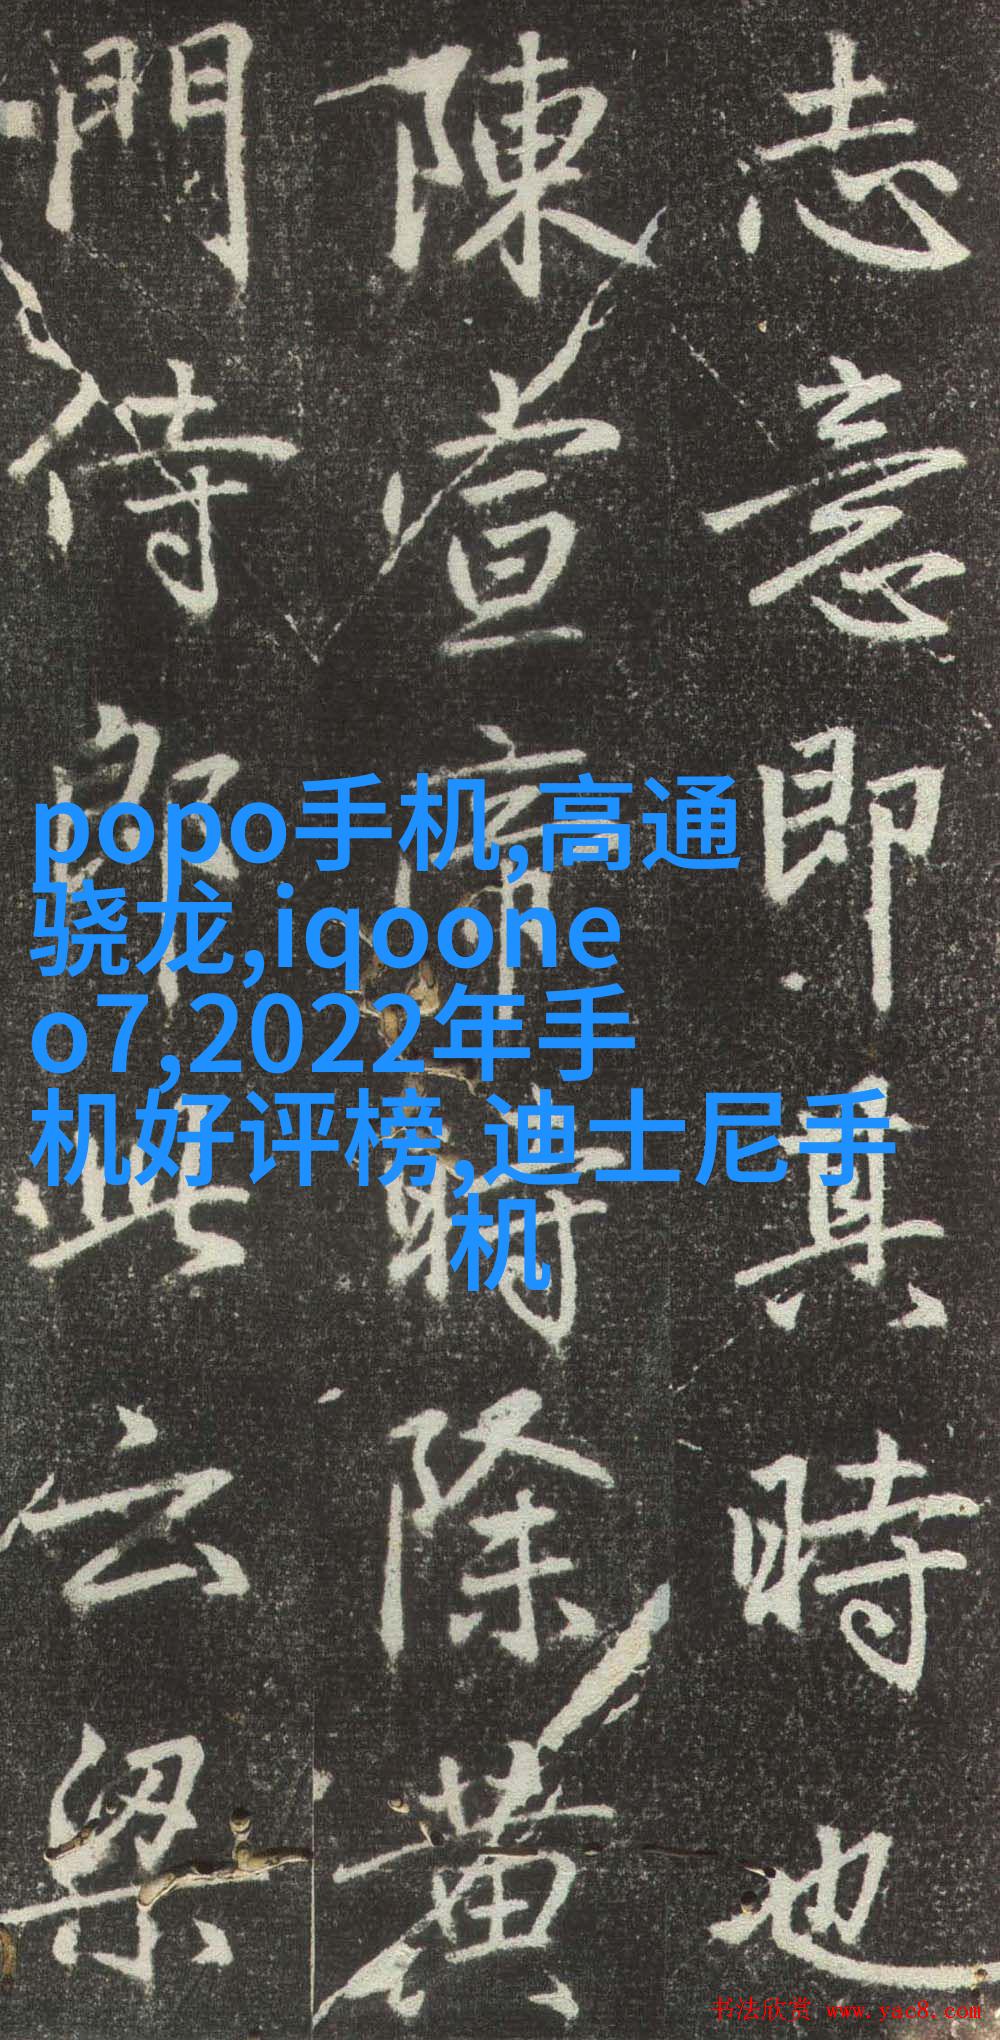 志意即真時也
陳宣帝時除黄
門侍郎此云梁
popo手机,高通
骁龙,iqoone
o7,2022年手
机好评榜,迪士尼手
机
书法欣赏 www.yac8.com